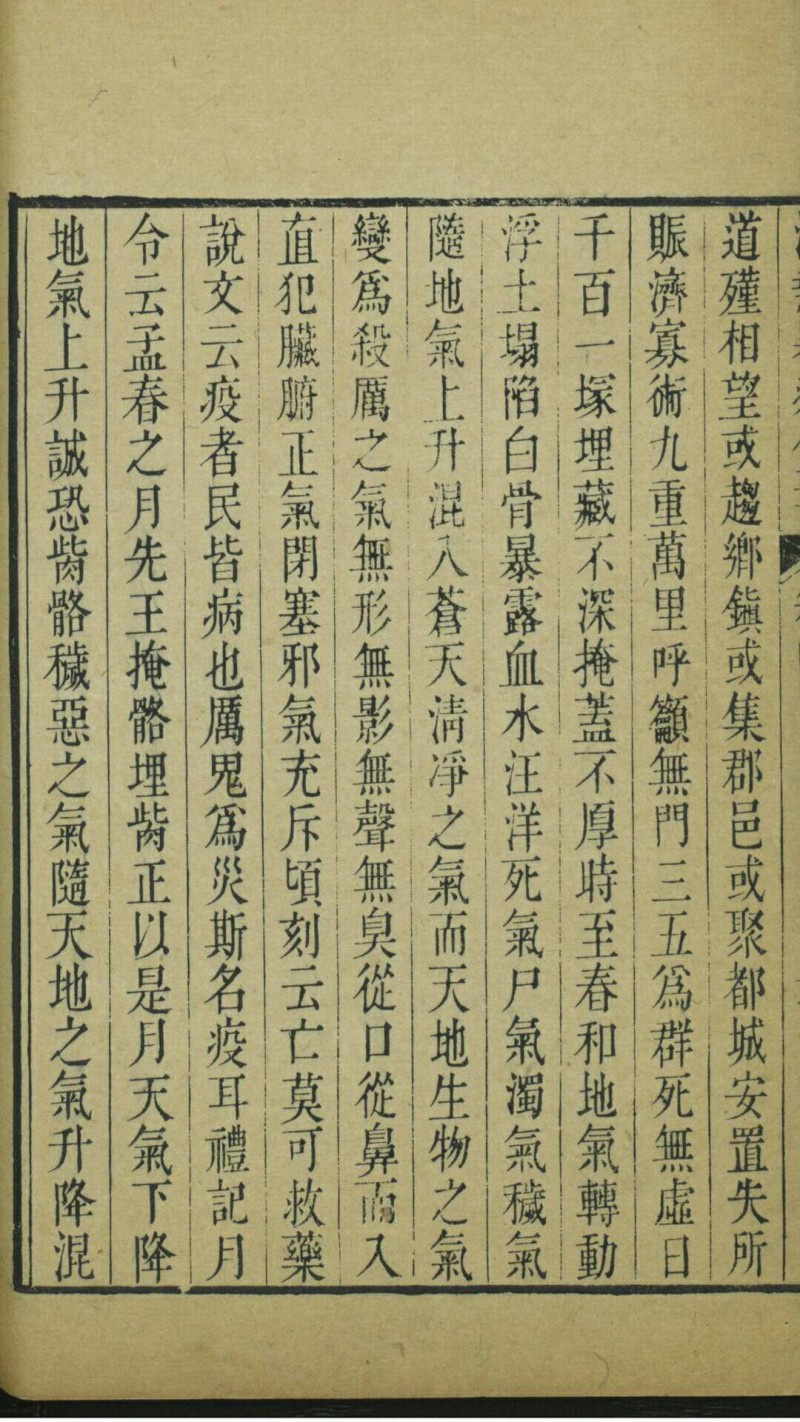 道殣相望或趨鄉鎮或集郡邑或聚都城安置失所
賑濟寡術九重萬里呼籲無門三五爲群死無虛日
千百一塚埋藏不深掩蓋不厚時至春和地氣轉動
浮土塌陷白骨暴露血水汪洋死氣尸氣濁氣穢氣
隨地氣上升混入蒼天清凈之氣而天地生物之氣
變爲殺厲之氣無形無影無聲無臭從口從鼻而入
直犯臟腑正氣閉塞邪氣充斥頃刻云亡莫可救藥
說文云疫者民皆病也厲鬼爲災斯名疫耳禮記月
令云孟春之月先王掩骼埋胔正以是月天氣下降
地氣上升誠恐胔骼穢惡之氣隨天地之氣升降混